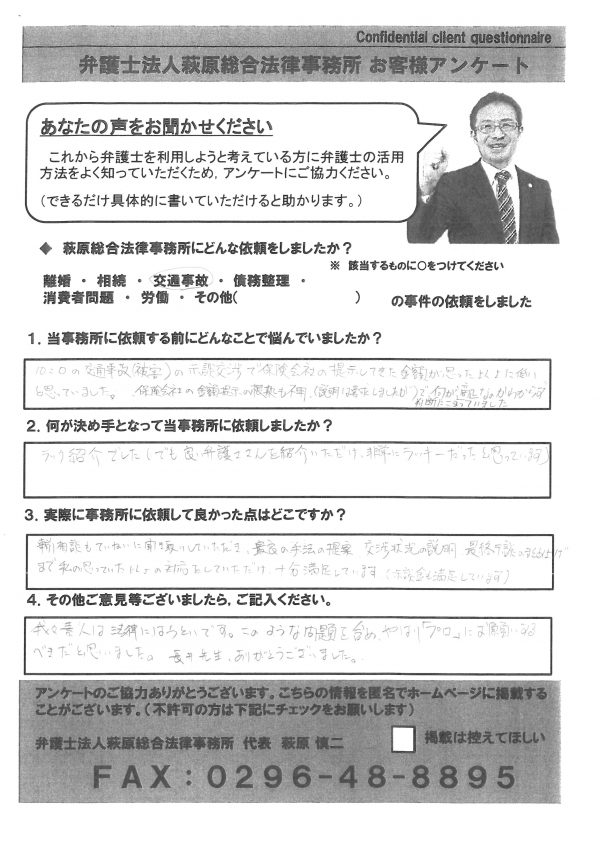 Confidential client questionnaire
弁護士法人萩原総合法律事務所 お客様アンケート
あなたの声をお聞かせください
これから弁護士を利用しようと考えている方に弁護士の活用
方法をよく知っていただくため,アンケートにご協力ください。
(できるだけ具体的に書いていただけると助かります。)
◆ 萩原総合法律事務所にどんな依頼をしましたか?
※ 該当するものに○をつけてください
離婚 ・ 相続 ・ 交通事故 ・ 債務整理 ・
消費者問題 ・ 労働 ・ その他( ) の事件の依頼をしました
1.当事務所に依頼する前にどんなことで悩んでいましたか?
10:0の交通事故(被害)の示談交渉で保険会社の提示してきた金額が思ったよりも低い
と思っていました。 保険会社の金額提示の根拠も不明、
判断にこまっていました
2.何が決め手となって当事務所に依頼しましたか?
紹介でした(でも良い弁護士さんを紹介いただけ、非常にラッキーだったと思っています)
3.実際に事務所に依頼して良かった点はどこですか?
相談もていねいに していただき、最良の手法の提案 交渉状況の説明 最終
まで私の思っていた以上の対応をしていただけ、十分満足しています(示談金も満足しています)
4.その他ご意見等ございましたら,ご記入ください。
我々素人は法律にはうといです。このような問題を含め、やはり「プロ」にお願いする
べきだと思いました。長井先生、ありがとうございました。
アンケートのご協力ありがとうございます。こちらの情報を匿名でホームページに掲載する
ことがございます。(不許可の方は下記にチェックをお願いします)
弁護士法人萩原総合法律事務所 代表 萩原 慎二 掲載は控えてほしい
FAX:0296-48-8895